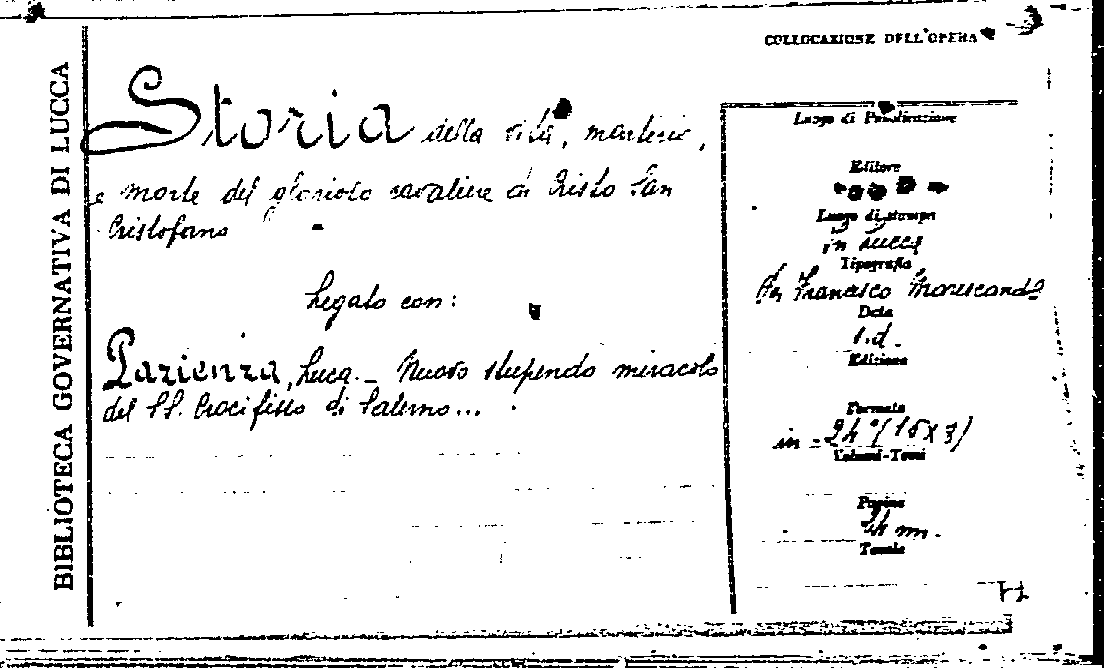 BIBLIOTECA GOVERNATIVA DI LUCCA
COLLOCAZIONE DELL'OPERA
Storia della vita, martirio,
e morte del glorioso cavaliere di Cristo San
Cristofano
Legato con:
Pazienza, Luca - Nuovo stupendo miracolo
del SS. Crocifisso di Salerno...
Luogo di Pubblicazione
Editore
Luogo di stampa
in Lucca
Tipografia
Per Francesco Marescandoli
Data
s.d.
Edizione
Formato
in-24° (15x7)
Volumi-Tomi
Pagine
nn.
Tavole